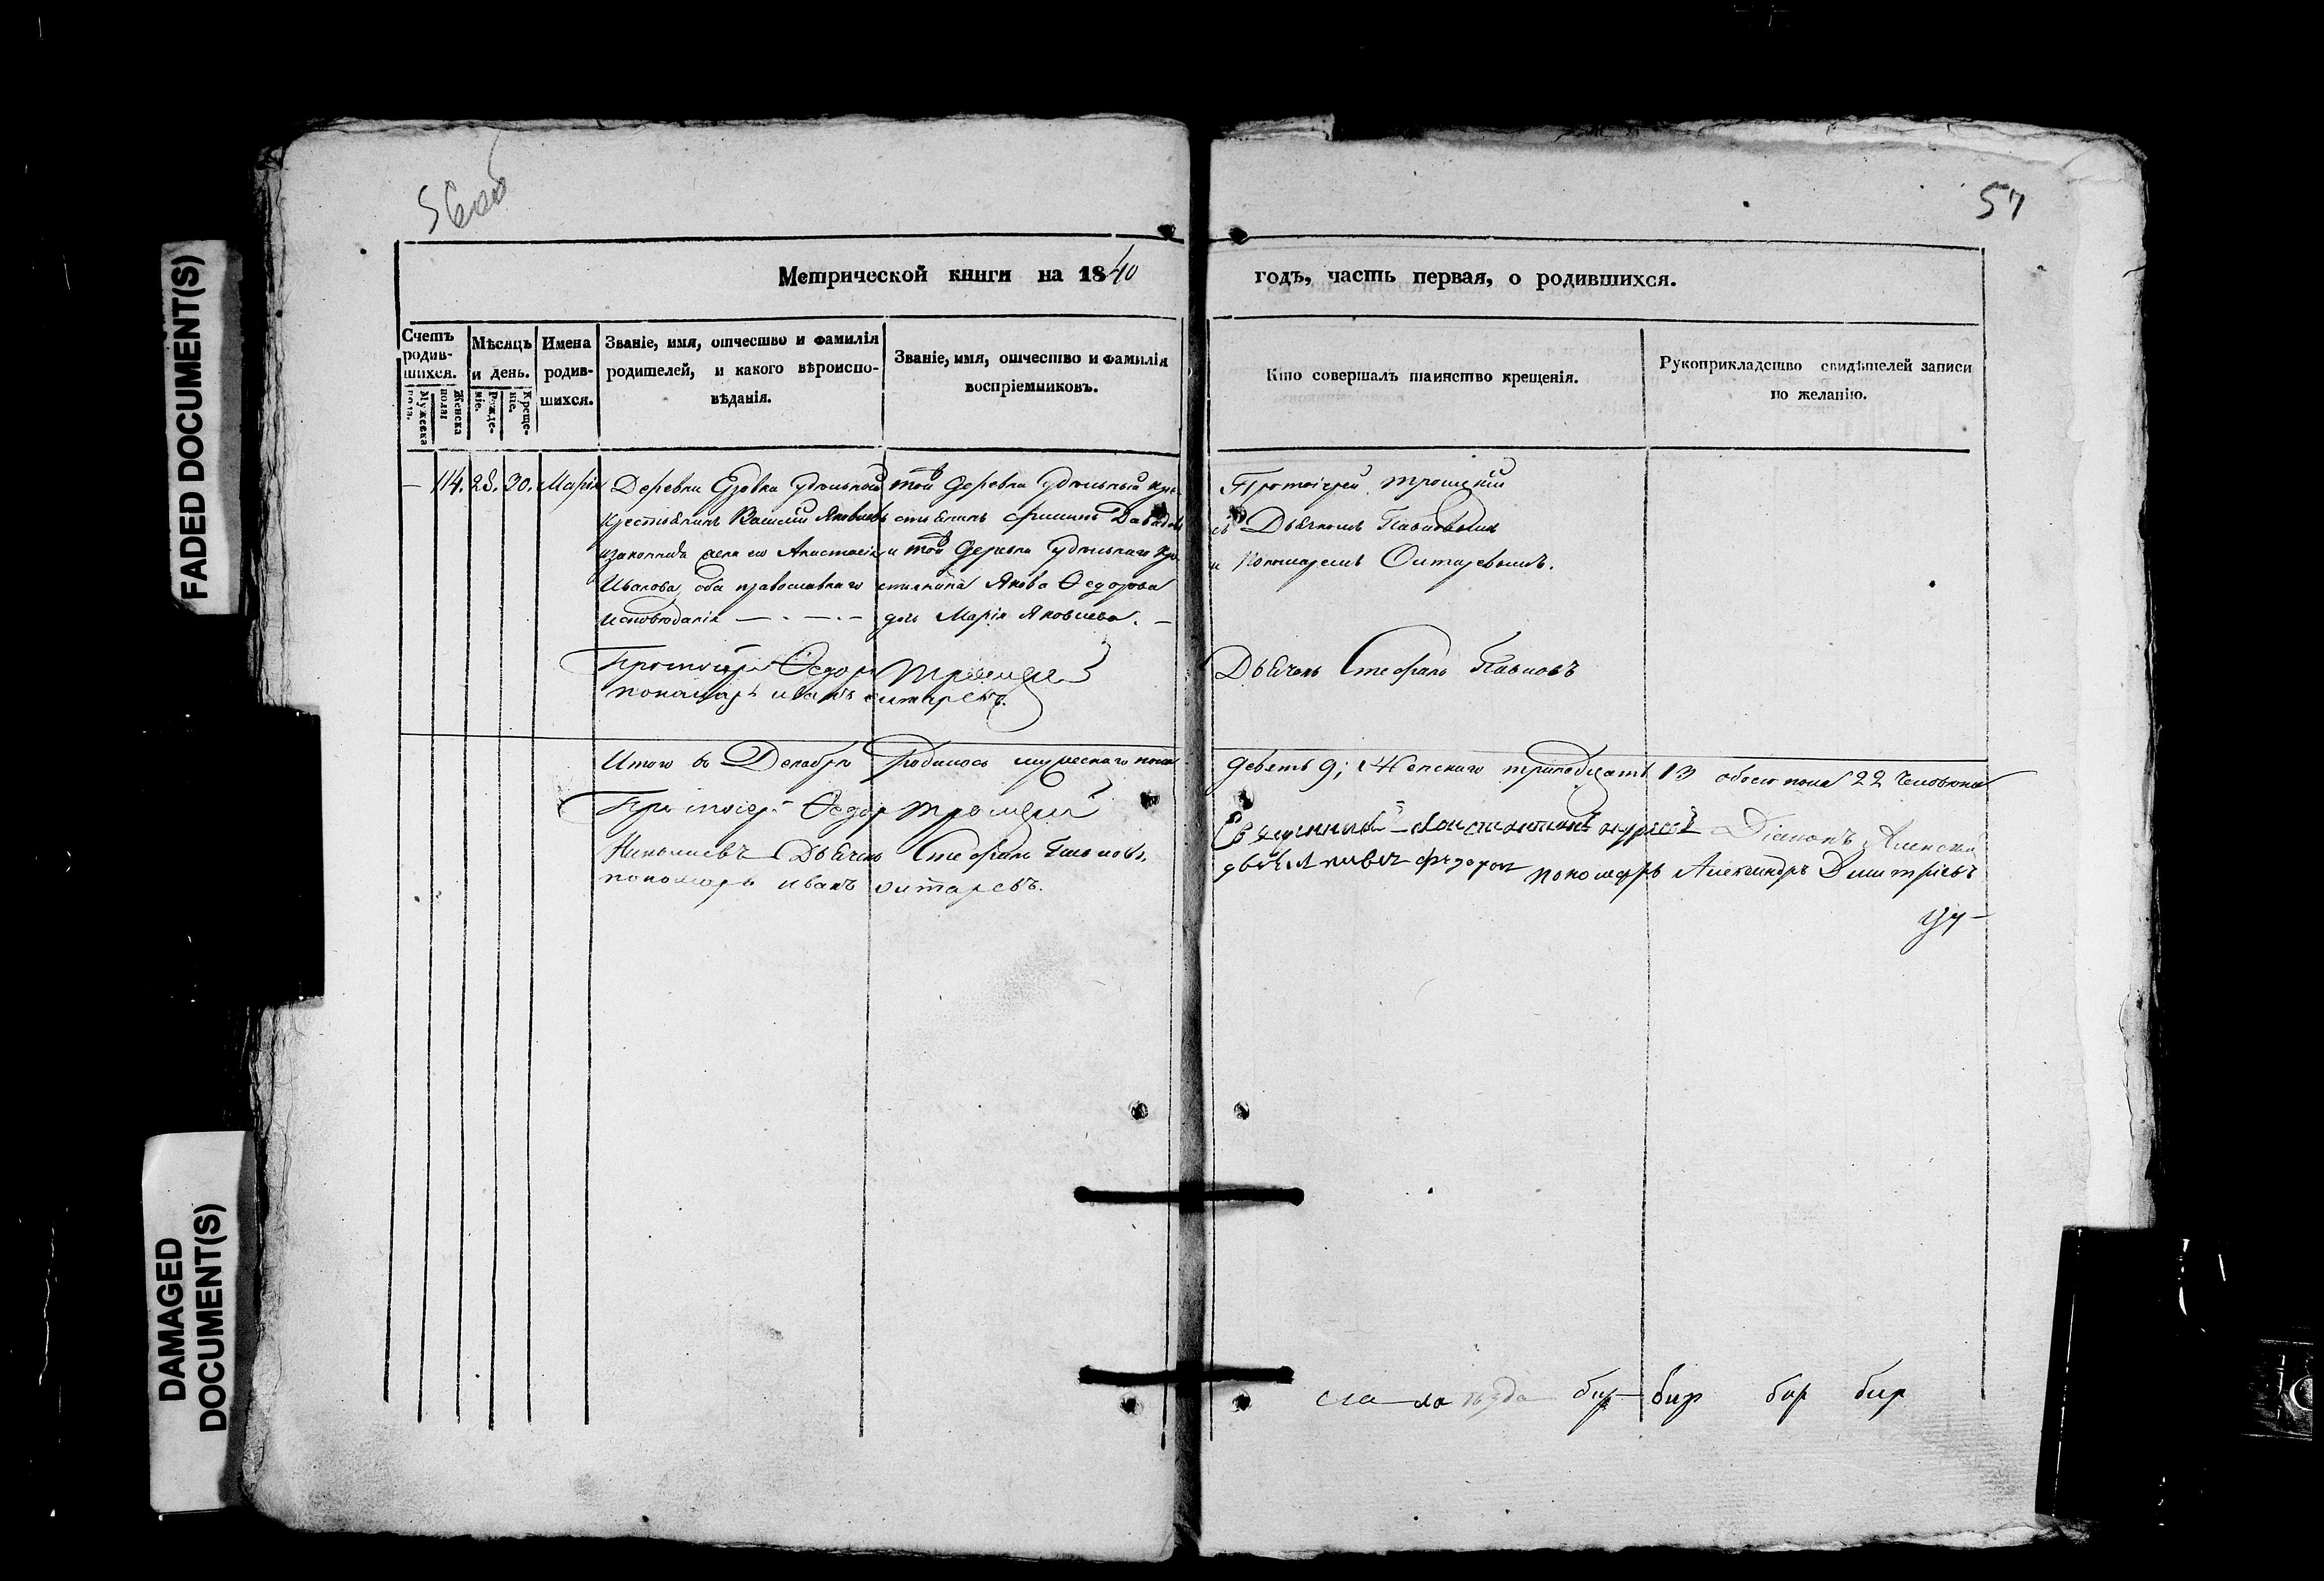 FADED DOCUMENT(S)
DAMAGED
DOCUMENT(S)
56об
57
Метрической книги на 1840 годъ, часть первая, о родившихся.
Счетъ
родив-
шихся.
Мужеска
пола.
Женска
полаı
Мѣсяцъ
и день.
Рожде-
ніе.
Креще-
ніе.
Имена
родив-
шихся.
Званіе, имя, отчество и фамилія
родителей, и какого вѣроиспо-
вѣданія.
Званіе, имя, отчество и фамилія
воспріемниковъ.
Кто совершалъ таинство крещенія.
Рукоприкладство свидѣтелей записи
по желанію.
— 114. 28. 30. Марія
Деревни Езовки удѣльной
крестьянинъ Василій Яковлевъ
и законная жена его Анастасія
Иванова, оба православнаго
исповѣданія — . — . —
той деревни удѣльный кре-
стьянинъ Давидовъ
и той деревни удѣльнаго кре-
стьянина Якова Ѳедорова
дочь Марія Яковлева. —
Протоіерей Троицкій
съ Дьячкомъ Павловымъ
и Пономаремъ
Протоіерей Ѳедоръ Троицкій
пономарь иванъ
Дьячекъ Стефанъ Павловъ
Итого въ Декабрѣ родилось мужескаго пола девять 9; Женскаго тринадцать 13 обоего пола 22 человѣка
Протоіерей Ѳедоръ Троицкій
Дьячекъ Стефанъ Павловъ,
пономарь иванъ
Священникъ Константинъ Діаконъ
федоров пономарь Александръ Дмитріевъ
бир бир бир бир